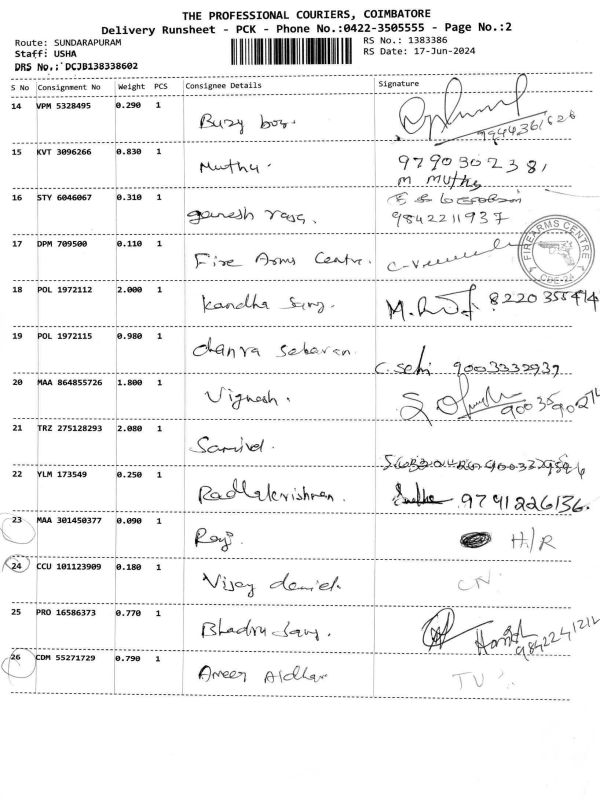 THE PROFESSIONAL COURIERS, COIMBATORE
Delivery Runsheet - PCK - Phone No.:0422-3505555 - Page No.:2
Route: SUNDARAPURAM
RS No.: 1383386
Staff: USHA
RS Date: 17-Jun-2024
DRS No.: DCJB138338602
S No Consignment No Weight PCS Consignee Details Signature
14 VPM 5328495 0.290 1 Buzy boy. 9944361626
15 KVT 3096266 0.830 1 Muthu. 9790302381
m muthu
16 STY 6046067 0.310 1 ganesh raja.
9842211937
17 DPM 709500 0.110 1 Fire Arms Centre.
FIREARMS CENTRE
CBE-24
18 POL 1972112 2.000 1 Kandha Samy. 8220355474
19 POL 1972115 0.980 1 C. Selvi 9003332937
20 MAA 864855726 1.800 1 Vignesh.
21 TRZ 275128293 2.080 1
22 YLM 173549 0.250 1 Radhakrishnan. 9791226136.
23 MAA 301450377 0.090 1 Raji. H/R
24 CCU 101123909 0.180 1 Vijay daniel. CN
25 PRO 16586373 0.770 1 Bhadru Samy. Harish 9842241212
26 CDM 55271729 0.790 1 Ameer Aidhar